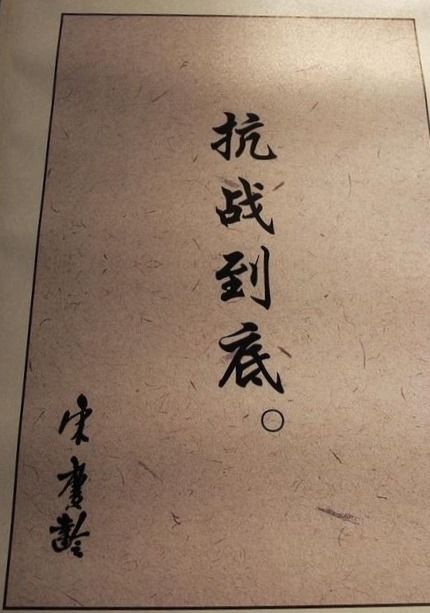 抗战到底。
宋庆龄